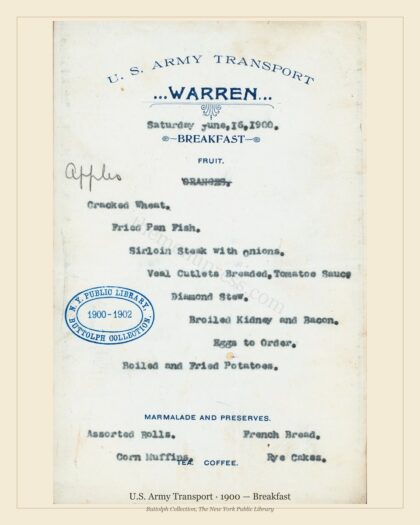 U. S. ARMY TRANSPORT
...WARREN...
Saturday june,16,1900.
BREAKFAST
FRUIT.
Apples
ORANGES.
Cracked Wheat.
Fried Pan Fish.
Sirloin Steak with onions.
Veal Cutlets Breaded,Tomatoe Sauce
Diamond Stew.
N. Y. PUBLIC LIBRARY,
1900-1902
BUTTOLPH COLLECTION.
Broiled Kidney and Bacon.
Eggs to Order.
Boiled and Fried Potatoes.
MARMALADE AND PRESERVES.
Assorted Rolls. French Bread.
Corn Muffins. Rye Cakes.
TEA. COFFEE.
U.S. Army Transport · 1900 — Breakfast
Buttolph Collection, The New York Public Library